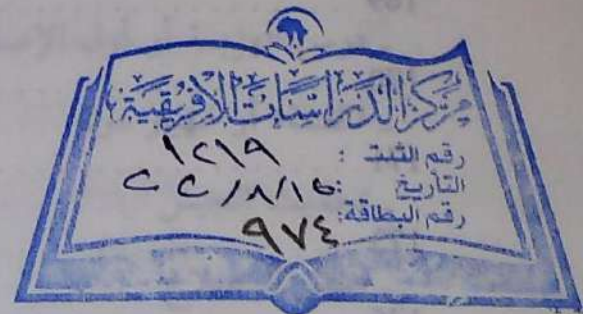 مركز الدراسات الأفريقية
رقم الثبت : ١٢١٩
التأريخ : ٢٢/٨/١٥
رقم البطاقة: ٩٧٤